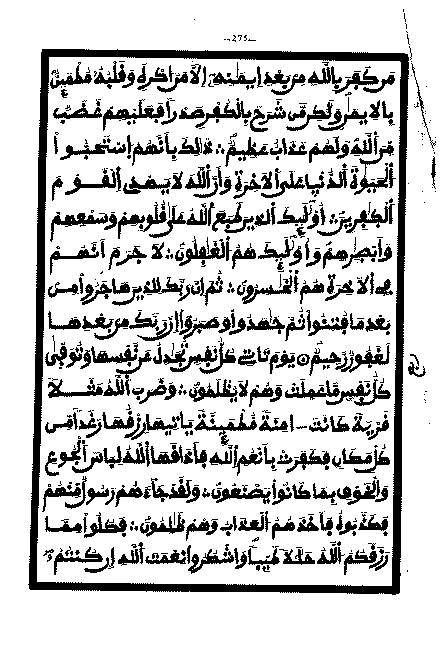 ـ275ـ
مَن كَفَرَ بِاللَّهِ مِن بَعْدِ إِيمَـٰنِهِ إِلَّا مَنُ ا۟كْرِهَ وَقَلْبُهُ مُطْمَئِنٌّ
بِالِايمَـٰنِ وَلَـٰكِن مَّن شَرَحَ بِالْكُفْرِ صَدْرًا فَعَلَيْهِمْ غَضَبٌ
مِّنَ اَللَّهِ وَلَهُمْ عَذَابٌ عَظِيمٌ ∴ ذَٰلِكَ بِأَنَّهُمُ اِسْتَحَبُّوا۟ ا
لْحَيَوٰةَ اَلدُّنْيَا عَلَى اَلَاخِرَةِ وَأَنَّ اَللَّهَ لَا يَهْدِى اِلْقَوْمَ
اَلْكَـٰفِرِينَ ∴ أُو۟لَـٰئِكَ اَلذِينَ طَبَعَ اَللَّهُ عَلَىٰ قُلُوبِهِمْ وَسَمْعِهِمْ
وَأَبْصَـٰرِهِمْ وَأُو۟لَـٰئِكَ هُمُ اَلْغَـٰفِلُونَ ∴ لَا جَرَمَ أَنَّهُمْ
فِى اِلَاخِرَةِ هُمُ اَلْخَـٰسِرُونَ ∴ ثُمَّ إِنَّ رَبَّكَ لِلذِينَ هَاجَرُوا۟ مِن
بَعْدِ مَا فُتِنُوا۟ ثُمَّ جَـٰهَدُوا۟ وَصَبَرُوا۟ إِنَّ رَبَّكَ مِن بَعْدِهَا
لَغَفُورٌ رَّحِيمٌ ۞ يَوْمَ تَاتِى كُلُّ نَفْسٍ تُجَـٰدِلُ عَن نَّفْسِهَا وَتُوَفَّىٰ
كُلُّ نَفْسٍ مَّا عَمِلَتْ وَهُمْ لَا يُظْلَمُونَ ∴ وَضَرَبَ اَللَّهُ مَثَلًا
قَرْيَةً كَانَتَ ـ امِنَةً مُّطْمَئِنَّةً يَاتِيهَا رِزْقُهَا رَغَدًا مِّن
كُلِّ مَكَانٍ فَكَفَرَتْ بِأَنْعُمِ اِللَّهِ فَأَذَاقَهَا اَللَّهُ لِبَاسَ اَلْجُوعِ
وَالْخَوْفِ بِمَا كَانُوا۟ يَصْنَعُونَ ∴ وَلَقَدْ جَآءَهُمْ رَسُولٌ مِّنْهُمْ
فَكَذَّبُوهُ فَأَخَذَهُمُ اَلْعَذَابُ وَهُمْ ظَـٰلِمُونَ ∴ فَكُلُوا۟ مِمَّا
رَزَقَكُمُ اَللَّهُ حَلَـٰلًا طَيِّبًا وَاشْكُرُوا۟ نِعْمَتَ اَللَّهِ إِن كُنتُمُۥ